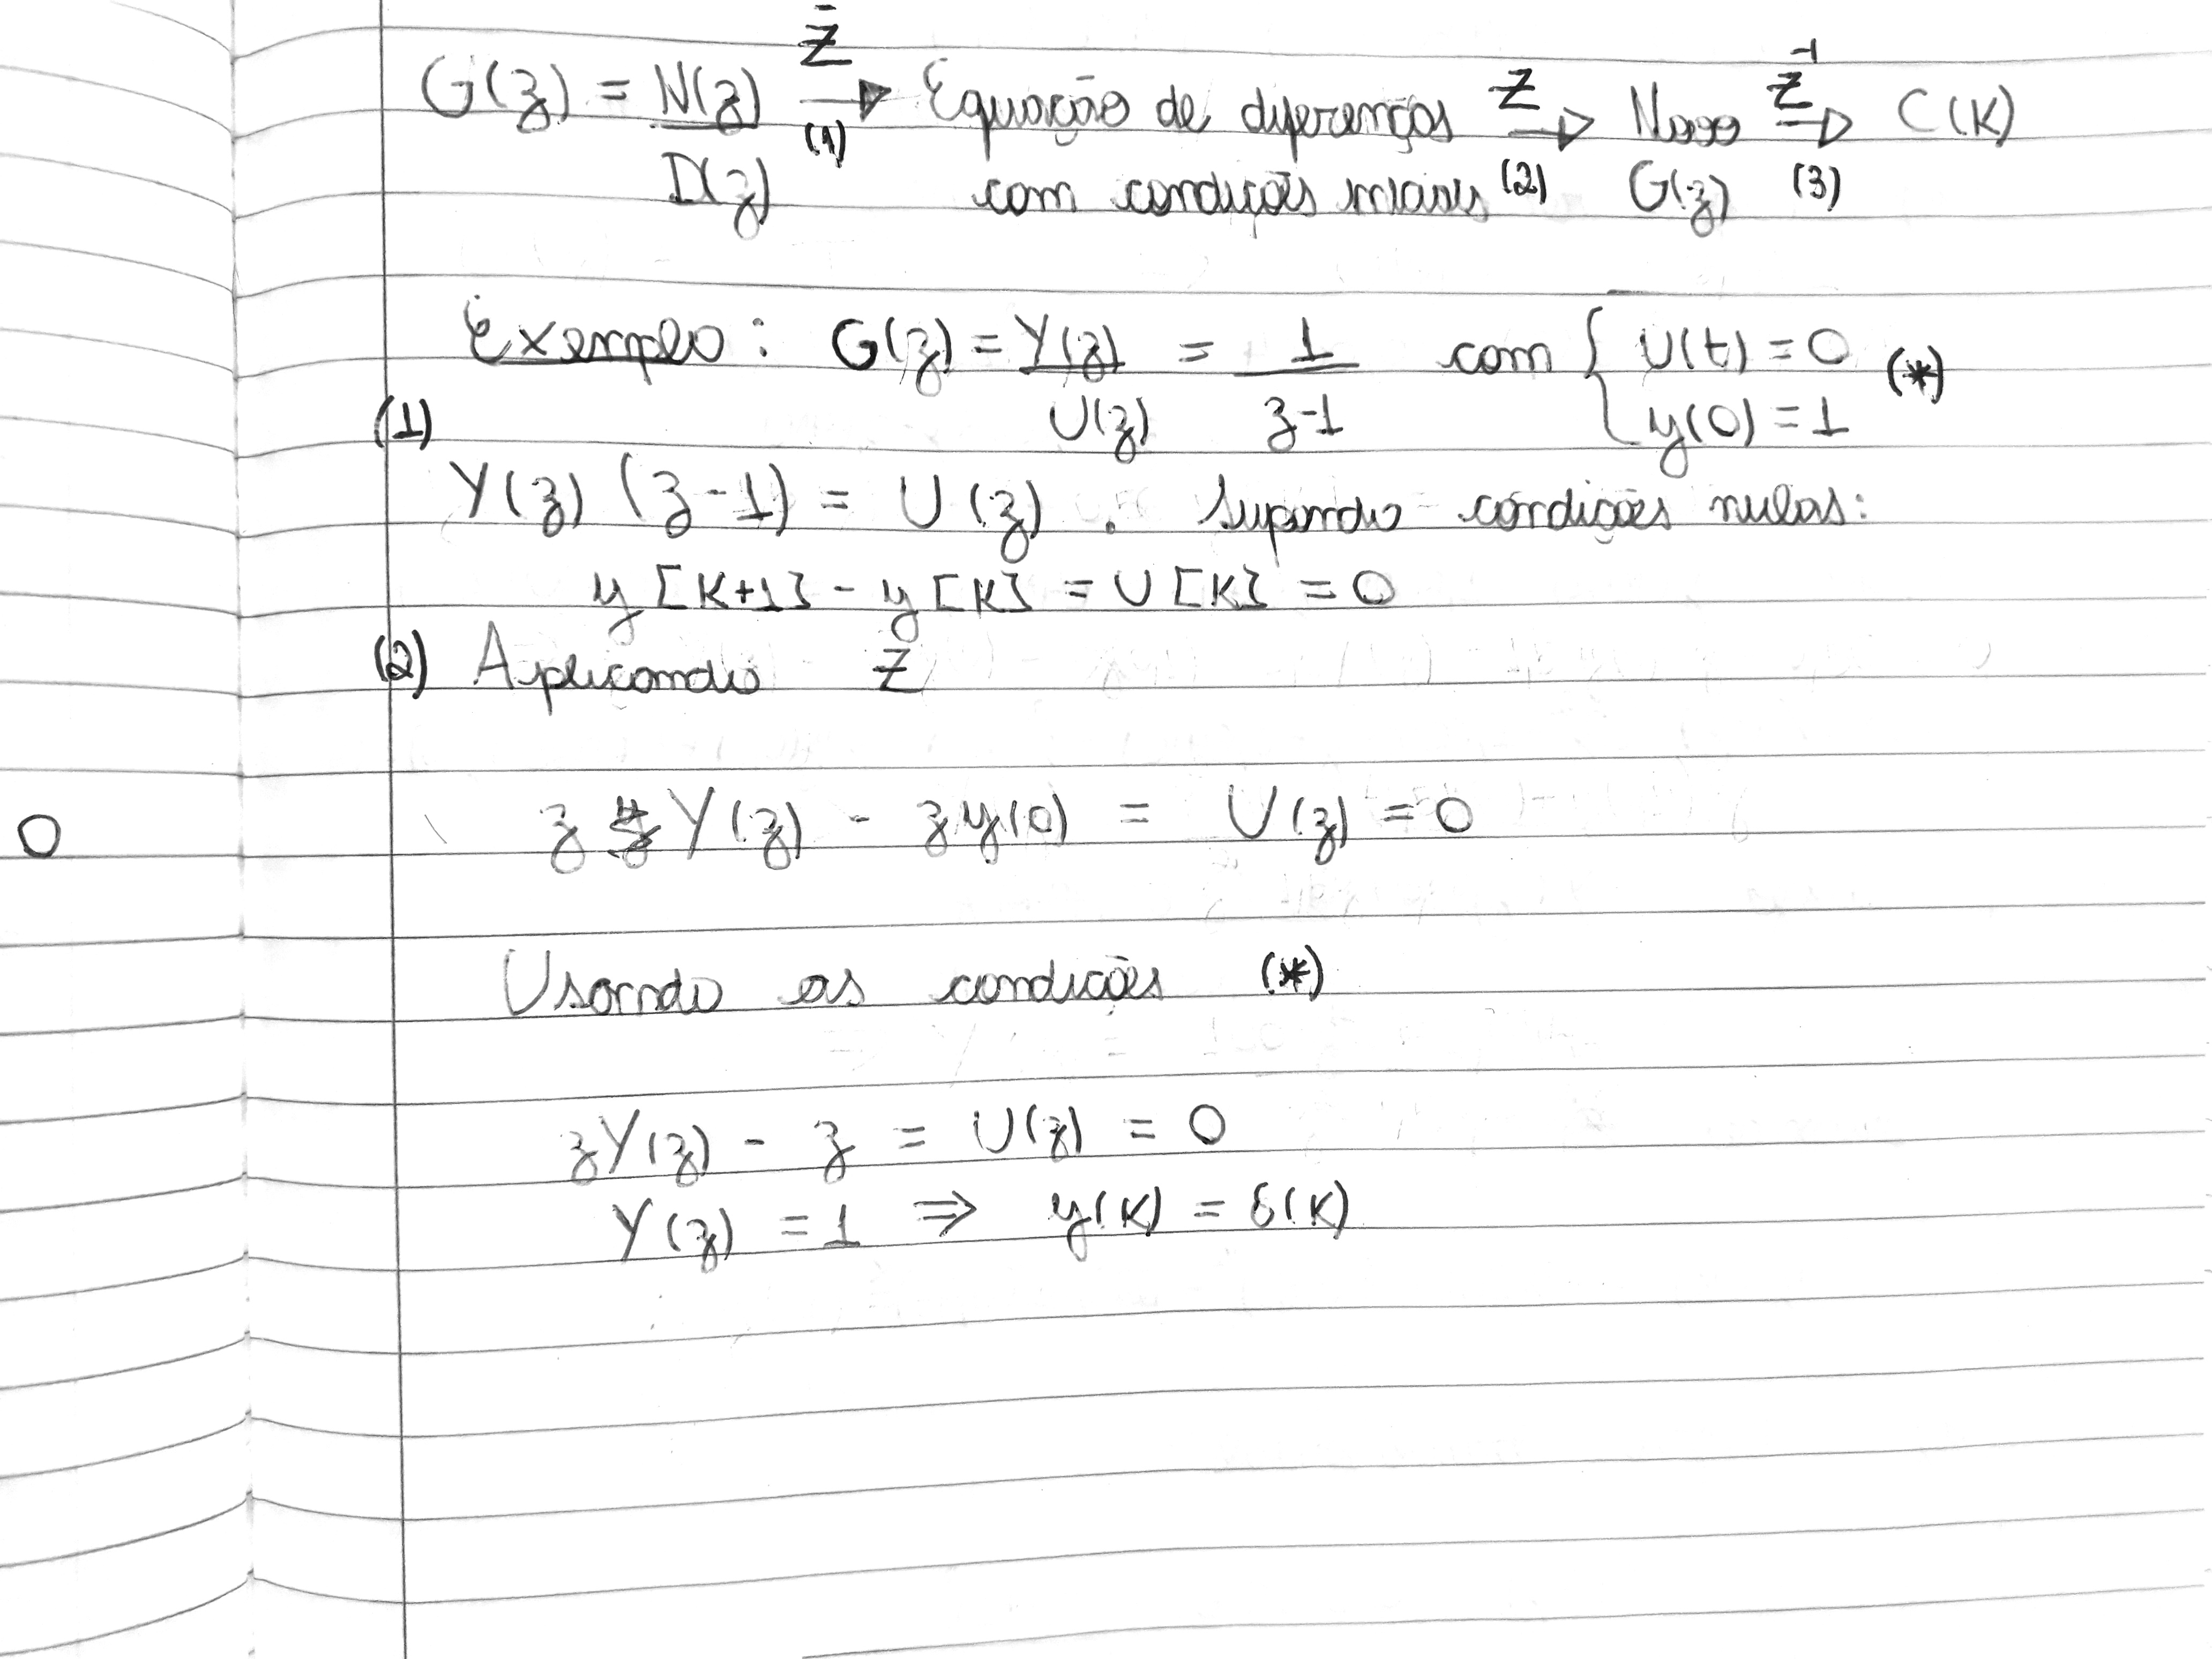 G(z) = N(z) Z̄ → (1) Equação de diferenças Z → Novo Z⁻¹ → C(K)
D(z) com condições iniciais (2) G(z) (3)
Exemplo: G(z) = Y(z) = 1 com { U(t) = 0 (*)
(1) U(z) z-1 y(0) = 1
Y(z) (z-1) = U(z) . Supondo condições nulas:
y[K+1] - y[K] = U[K] = 0
(2) Aplicando Z
z Y(z) - z y(0) = U(z) = 0
0
Usando as condições (*)
zY(z) - z = U(z) = 0
Y(z) = 1 ⇒ y(K) = δ(K)